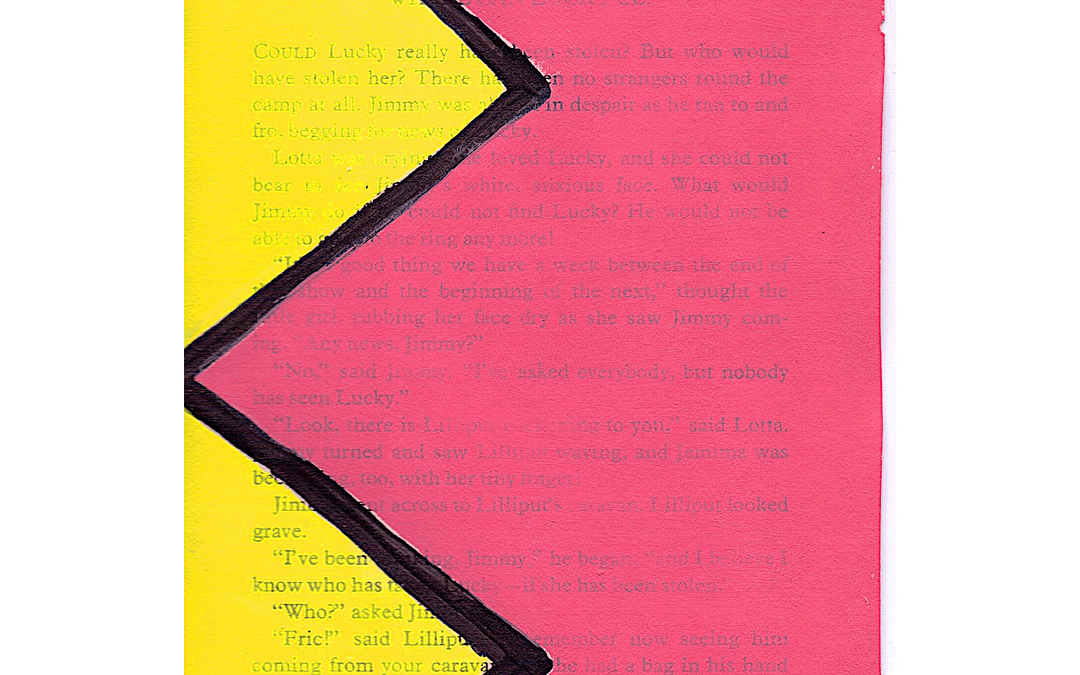 COULD Lucky really been stolen? But who would
have stolen her? There no strangers round the
camp at all. Jimmy was in despair as he ran to and
fro, begging for news
Lotta was crying. loved Lucky, and she could not
bear to see white, anxious face. What would
Jimmy do could not find Lucky? He would not be
able to the ring any more!
good thing we have a week between the end of
show and the beginning of the next,” thought the
little girl, rubbing her face dry as she saw Jimmy com-
ing. “Any news, Jimmy?”
“No,” said Jimmy. “I’ve asked everybody, but nobody
has seen Lucky.”
“Look, there is Lilliput to you,” said Lotta.
turned and saw Lilliput waving, and Jemima was
too, with her tiny finger!
across to Lilliput’s caravan. Lilliput looked
grave.
“I’ve been Jimmy,” he began, “and I
know who has Lucky—if she has been stolen.”
“Who?” asked
“Fric!” said remember now seeing him
coming from your he had a bag in his hand